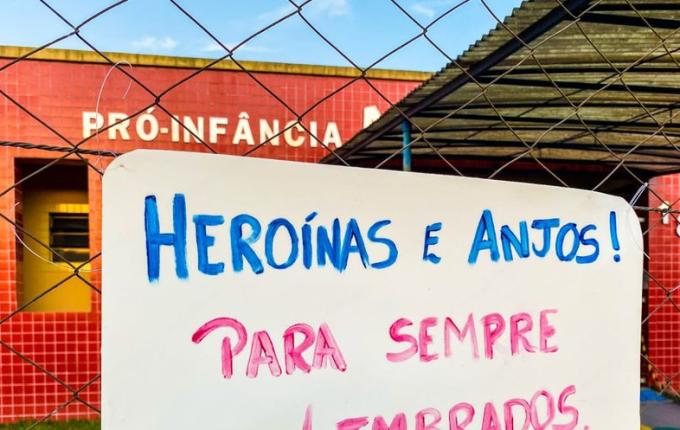 PRÓ-INFÂNCIA
HEROÍNAS E ANJOS!
PARA SEMPRE
LEMBRADOS.